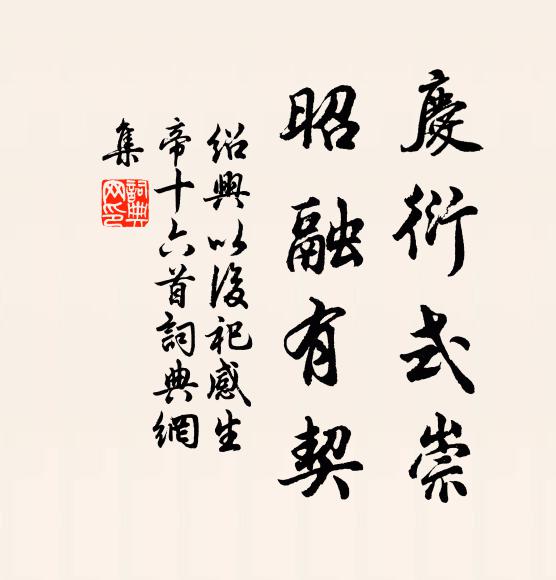 慶衍式崇
昭融有契
紹興以後祀感生
帝十六首詞典網
集
詞典网印